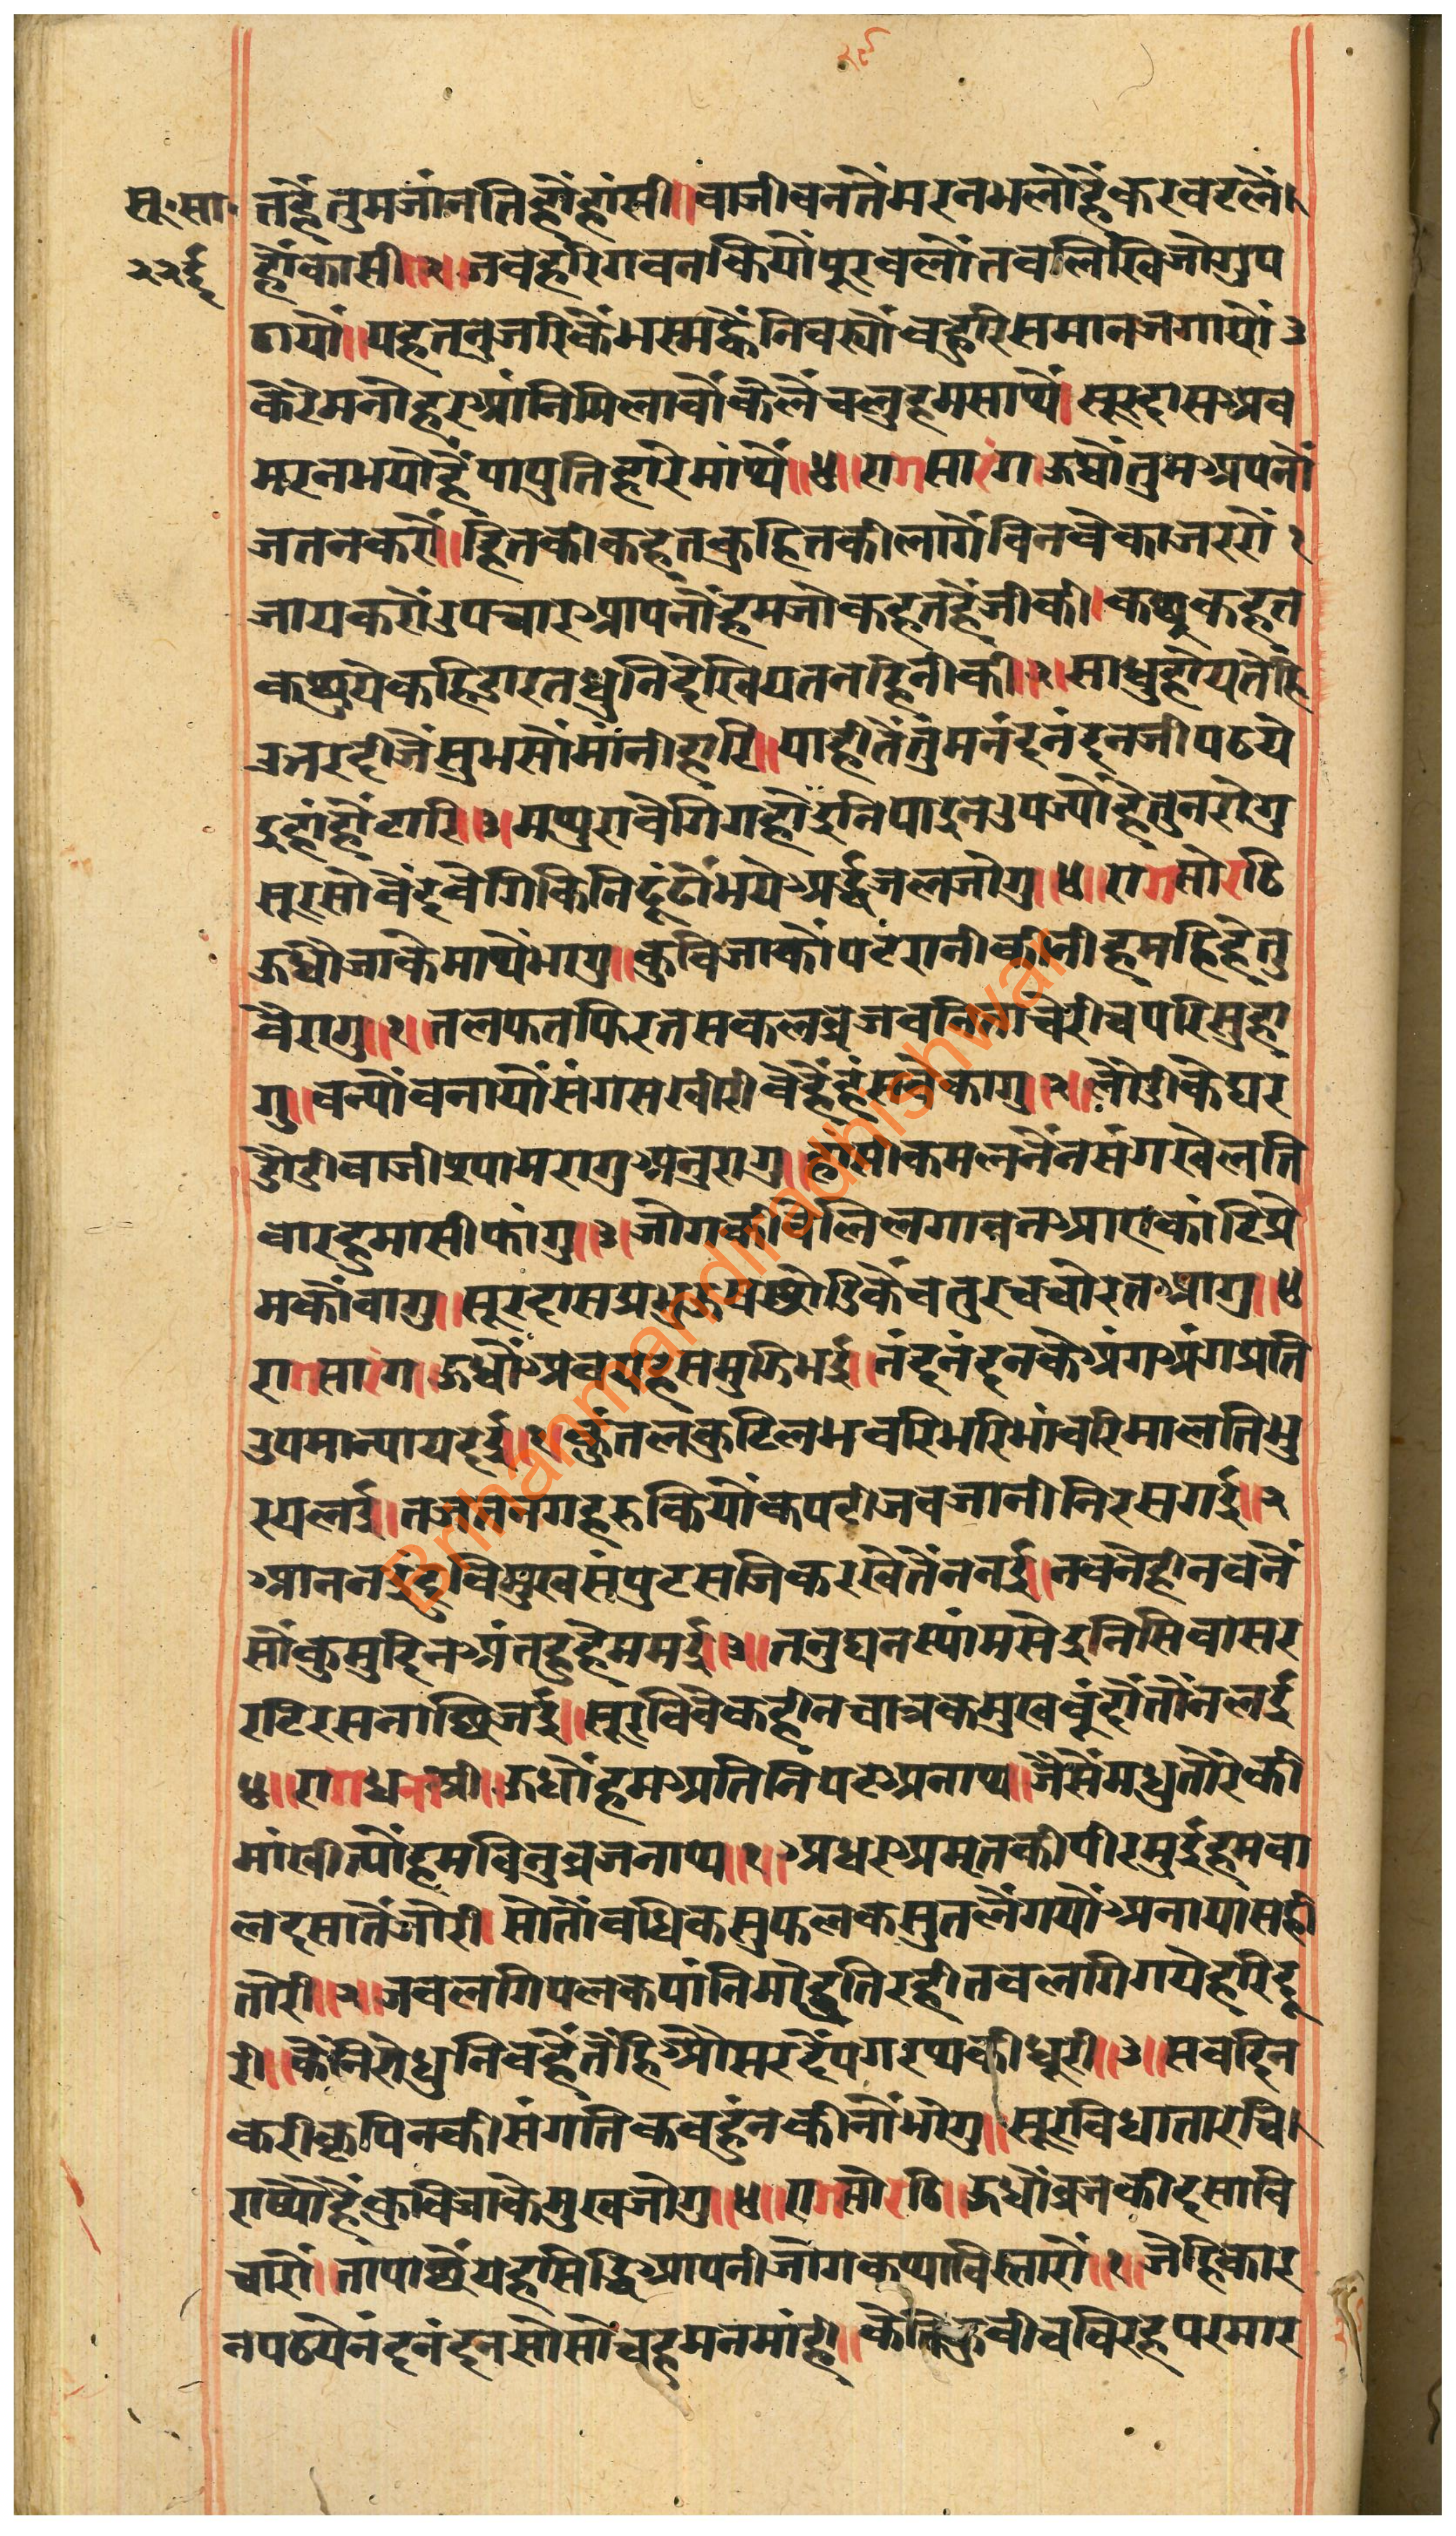 २९
सू॰सा॰ तहैं तुमजांनतिहौंहांसी॥वाजीवनतेंमरनभलोहैंकरवटलैं
२२ई हौंकासी॥२॥जवहरिगवनकियौंपूरवलौंतवलिखिजोगुप
ठायौं॥यहतनुजरिकैंभस्मह्वैंनिवर्यौवहुरिसमानजगायौं३
कैरेमनोहरआंनिमिलावौंकैलैंचलुहमसाथैं।सूरदासअव
मरनभयोहैंपापुतिहारेमांथैं॥४॥रागसारंगऊधौंतुमअपनौं
जतनकरौं॥हितकीकहतकुहितकीलागैंविनवेकाजररौं१
जायकरौंउपचारआपनौंहमजोकहतहैंजीकी।कछुकहत
कछुयेकहिडारतधुनिदेखियतनहिनीकी॥२॥साधुहोयतेहि
उत्तरदीजैंतुमसौंमांनीहारि॥याहीतैंतुमनंदनंदनजीपठये
इहांहौंटारि॥३॥मथुरावेगिगहौइनिपाइनउपज्यौंहैतनरोगु
सूरसोवैंदवेगिकिनिढूंढौंभयेअर्द्धजलजोगु॥४॥रागसोरठि
ऊधौजाकेमाथेंभागु॥कुविजाकौंपटरानीकीनीहमहिदेतु
वैरागु॥१॥तलफतफिरतसकलव्रजवनिताचेरीचपरिसुहा
गु॥वन्यौंवनायौंसंगसखीरीवैहैंहंसवेकागु॥२॥लौंडीकेघर
डौडीवाजीश्यामरागुअनुरागु॥हांसीकमलनैंनसंगखेलति
वारहुमासीफागु॥३॥जोगकीवेलिलगावनआएकाटिप्रे
मकौंवागु॥सूरदासप्रभुऊषछोडिकैंचतुरचचोरतआगु॥४
रागसारंगऊधौंअवयहसमुझिभई॥नंदनंदनकेअंगअंगप्रति
उपमान्यायदई॥१॥कुंतलकुटिलभवरिभरिभांवरिमालतिभु
रयलई॥तजतनगहरुकियौंकपटीजवजानीनिरसगई॥२
आननइंदुविमुखसंपुटसजिकरखेतैंननई॥नवनेहीनवनैं
सौंकुमुदिनअंतहुहेममई॥३॥तनुघनस्यांमसेइनिसिवासर
रटिरसनाछिजई॥सूरविवेकहीनचात्रकमुखवुंदौंतौंनलई
४॥रागधनाश्री॥ऊधौंहमअतिनिंपटअनाथ॥जैसैंमधुतोरेकी
मांखीत्यौंहमविनुव्रजनाथ॥१॥अधरअमृतकीपीरमुईहमवा
लदसातैंजोरी।सोतौंवधिकसुफलकसुतलैंगयौंअनायासही
तोरी॥२॥जवलगिपलकपांनिमीडतिरहीतवलगिगयेहरिदू
री॥कैंनिरोधुनिवहैंतेंहिऔसरदैंपगरथकीधूरी॥३॥सवदिन
करीकृपिनकीसंगतिकवहुंनकीनौंभोगु॥सूरविधातारचि
राख्यौहैंकुविजाकेमुखजोगु॥४॥रागसोरठि॥ऊधौंव्रजकीदसावि
चारौं॥तापाछेंयहसिद्धिआपनीजोगकथाविस्तारौं॥१॥जेहिकार
नपठयेनंदनंदनसोसोचहुमनमांही॥केतिकवीचविरहपरमार
Brihanmandiradhishwar